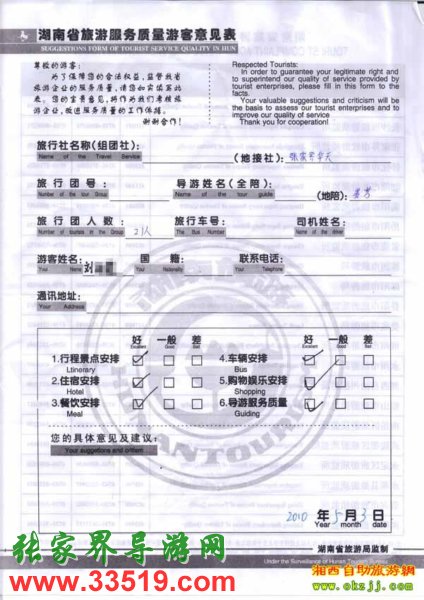 湖南省旅游服务质量游客意见表
SUGGESTIONS FORM OF TOURIST SERVICE QUALITY IN HUN
尊敬的游客：
为了保障您的合法权益，监督我省
旅游企业的服务质量，请您如实填写此
表。您的宝贵意见，将作为我们考核旅
游企业，改进服务质量的工作依据。
谢谢合作！
Respected Tourists:
In order to guarantee your legitimate right and
to superintend our quality of service provided by
tourist enterprises, please fill in this form to the
facts.
Your valuable suggestions and criticism will be
the basis to assess our tourist enterprises and to
improve our quality of service
Thank you for cooperation!
旅行社名称(组团社):
Name of the Travel Service
(地接社):
旅行团号:
Number of the tour Group
导游姓名(全陪)
Name of the tour guide
(地陪):
旅行团人数:
Number of tourists in the Group
21人
旅行车号:
The Bus Number
司机姓名:
Name of the driver
游客姓名:
Your Name
刘
国籍:
Your Nationality
联系电话:
Your Telephone
通讯地址:
Your Address
好 一般 差
Excellent Good Bad
好 一般 差
Excellent Good Bad
1.行程景点安排
Ltinerary
4.车辆安排
Bus
2.住宿安排
Hotel
5.购物娱乐安排
Shopping
3.餐饮安排
Meal
6.导游服务质量
Guiding
您的具体意见及建议:
Your suggestions and critism
2010 年 5 月 3 日
Year month date
湖南省旅游局监制
Under the Surveillance of Hunan Tourism Bureau
张家界导游网
www.33519.com
湘西自助旅游网
www.okzjj.com